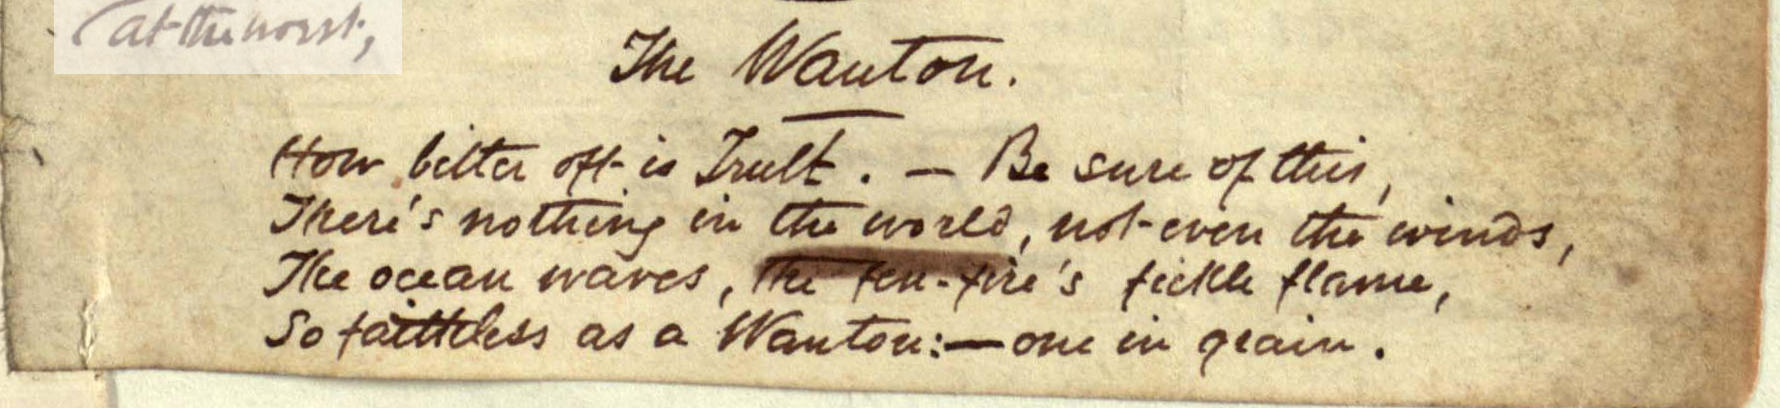 (at the worst,
The Wanton.
How better off is Trull. — Be sure of this,
There's nothing in the world, not even the winds,
The ocean waves, the fen-fire's fickle flame,
So faithless as a Wanton:—one in grain.